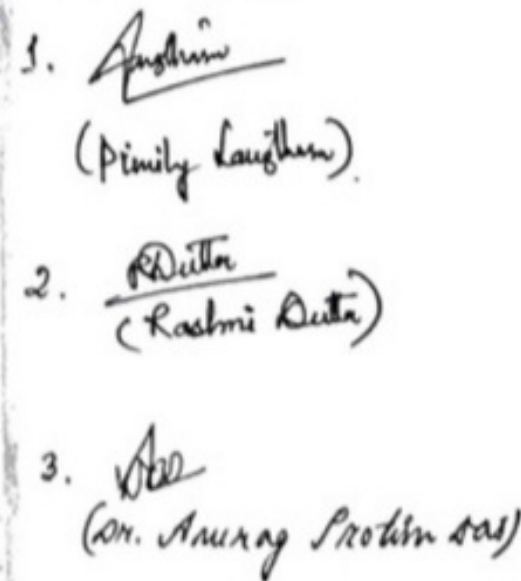 1.
(Pimily Langthasa)
2. RDutta
(Rashmi Dutta)
3. Das
(Dr. Anurag Protim Das)